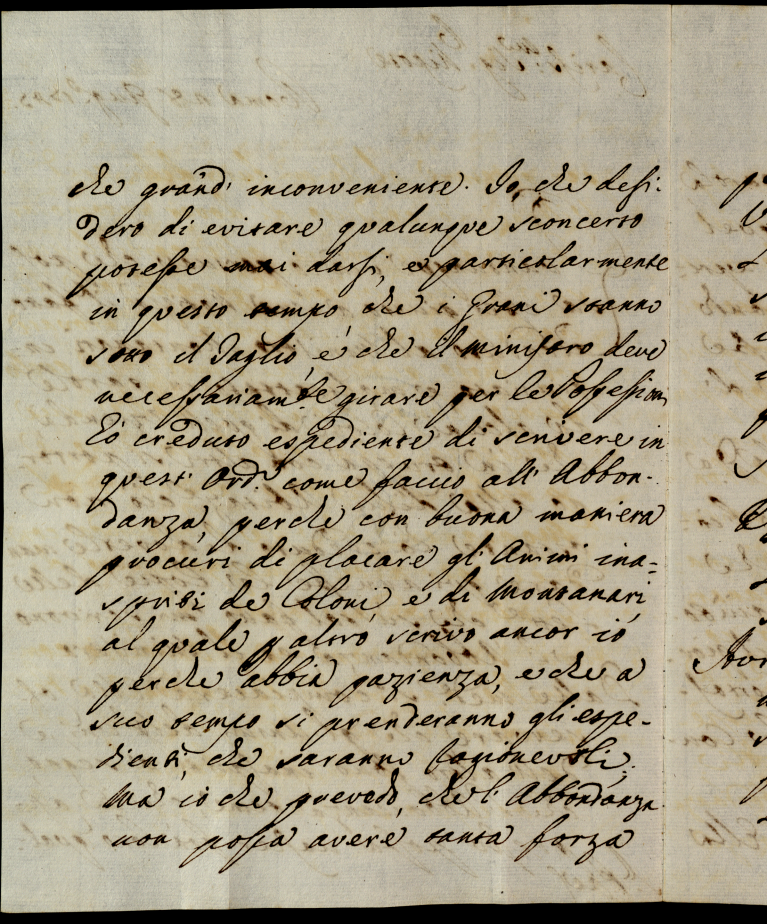 che grand' inconveniente. Io, che desi-
dero di evitare qualunque sconcerto
potesse mai darsi, e particolarmente
in questo tempo che i Grani stanno
sotto il Taglio, e che il ministro deve
necessariam.te girare per le Possessioni
Ho creduto espediente di scrivere in
quest' Ord.o come faccio all' Abbon-
danza, perche con buona maniera
procuri di placare gl' Animi ina-
spriti de Coloni, e di Montanari
al quale p altro scrivo ancor io
perche abbia pazienza, e che a
suo tempo si prenderanno gli espe-
dienti, che saranno ragionevoli,
Ma io che prevedo, che l' Abbondanza
non possa avere tanta forza